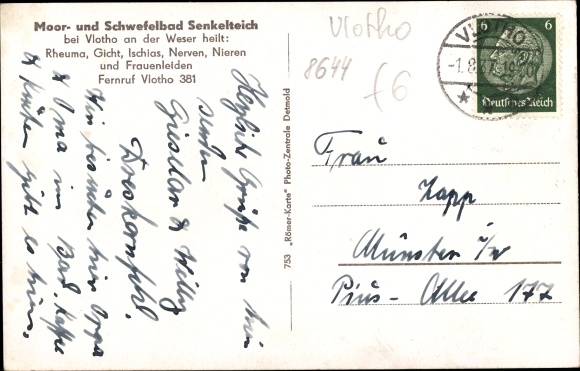 Moor- und Schwefelbad Senkelteich
bei Vlotho an der Weser heilt:
Rheuma, Gicht, Ischias, Nerven, Nieren
und Frauenleiden
Fernruf Vlotho 381
Herzliche Grüße von hier
senden
Giselar & Willy
Dreskornfehl.
Wir besuchen hier Oppa
& Oma im Bad. Kaffee
& Kuchen gibt es hier.
753 „Römer-Karte" Photo-Zentrale Detmold
Vlotho
8644
f6
VLOTHO
-1.8.37.19-20
6 6
Deutsches Reich
Frau
Zapp
Münster i/W
Pius-Allee 177